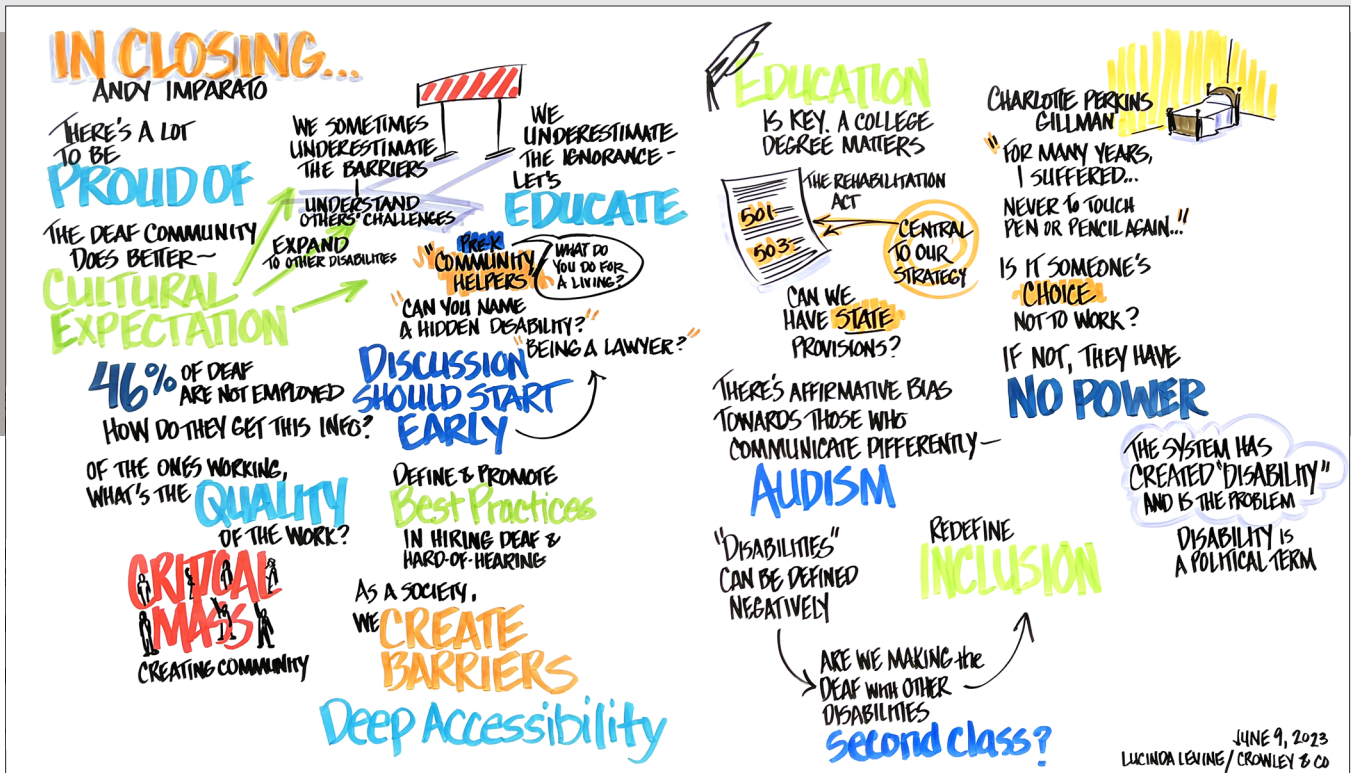 IN CLOSING...
ANDY IMPARATO
THERE'S A LOT
TO BE
PROUD OF
THE DEAF COMMUNITY
DOES BETTER~
CULTURAL
EXPECTATION
WE SOMETIMES
UNDERESTIMATE
THE BARRIERS
UNDERSTAND
OTHERS' CHALLENGES
EXPAND
TO OTHER DISABILITIES
WE
UNDERESTIMATE
THE IGNORANCE-
LET'S
EDUCATE
PRE-K
"COMMUNITY
HELPERS
WHAT DO
YOU DO FOR
A LIVING?
"CAN YOU NAME
A HIDDEN DISABILITY?"
"BEING A LAWYER?"
DISCUSSION
SHOULD START
EARLY
46% OF DEAF
ARE NOT EMPLOYED
HOW DO THEY GET THIS INFO?
OF THE ONES WORKING,
WHAT'S THE QUALITY
OF THE WORK?
CRITICAL
MASS
CREATING COMMUNITY
DEFINE & PROMOTE
Best Practices
IN HIRING DEAF &
HARD-OF-HEARING
AS A SOCIETY,
WE CREATE
BARRIERS
Deep Accessibility
EDUCATION
IS KEY. A COLLEGE
DEGREE MATTERS
THE REHABILITATION
ACT
501-
503-
CENTRAL
TO OUR
STRATEGY
CAN WE
HAVE STATE
PROVISIONS?
THERE'S AFFIRMATIVE BIAS
TOWARDS THOSE WHO
COMMUNICATE DIFFERENTLY-
AUDISM
"DISABILITIES"
CAN BE DEFINED
NEGATIVELY
ARE WE MAKING the
DEAF with OTHER
DISABILITIES
second class?
REDEFINE
INCLUSION
CHARLOTTE PERKINS
GILLMAN
"FOR MANY YEARS,
I SUFFERED...
NEVER to TOUCH
PEN OR PENCIL AGAIN..."
IS IT SOMEONE'S
CHOICE
NOT TO WORK?
IF NOT, THEY HAVE
NO POWER
THE SYSTEM HAS
CREATED "DISABILITY"
AND IS THE PROBLEM
DISABILITY IS
A POLITICAL TERM
JUNE 9, 2023
LUCINDA LEVINE/CROWLEY & CO